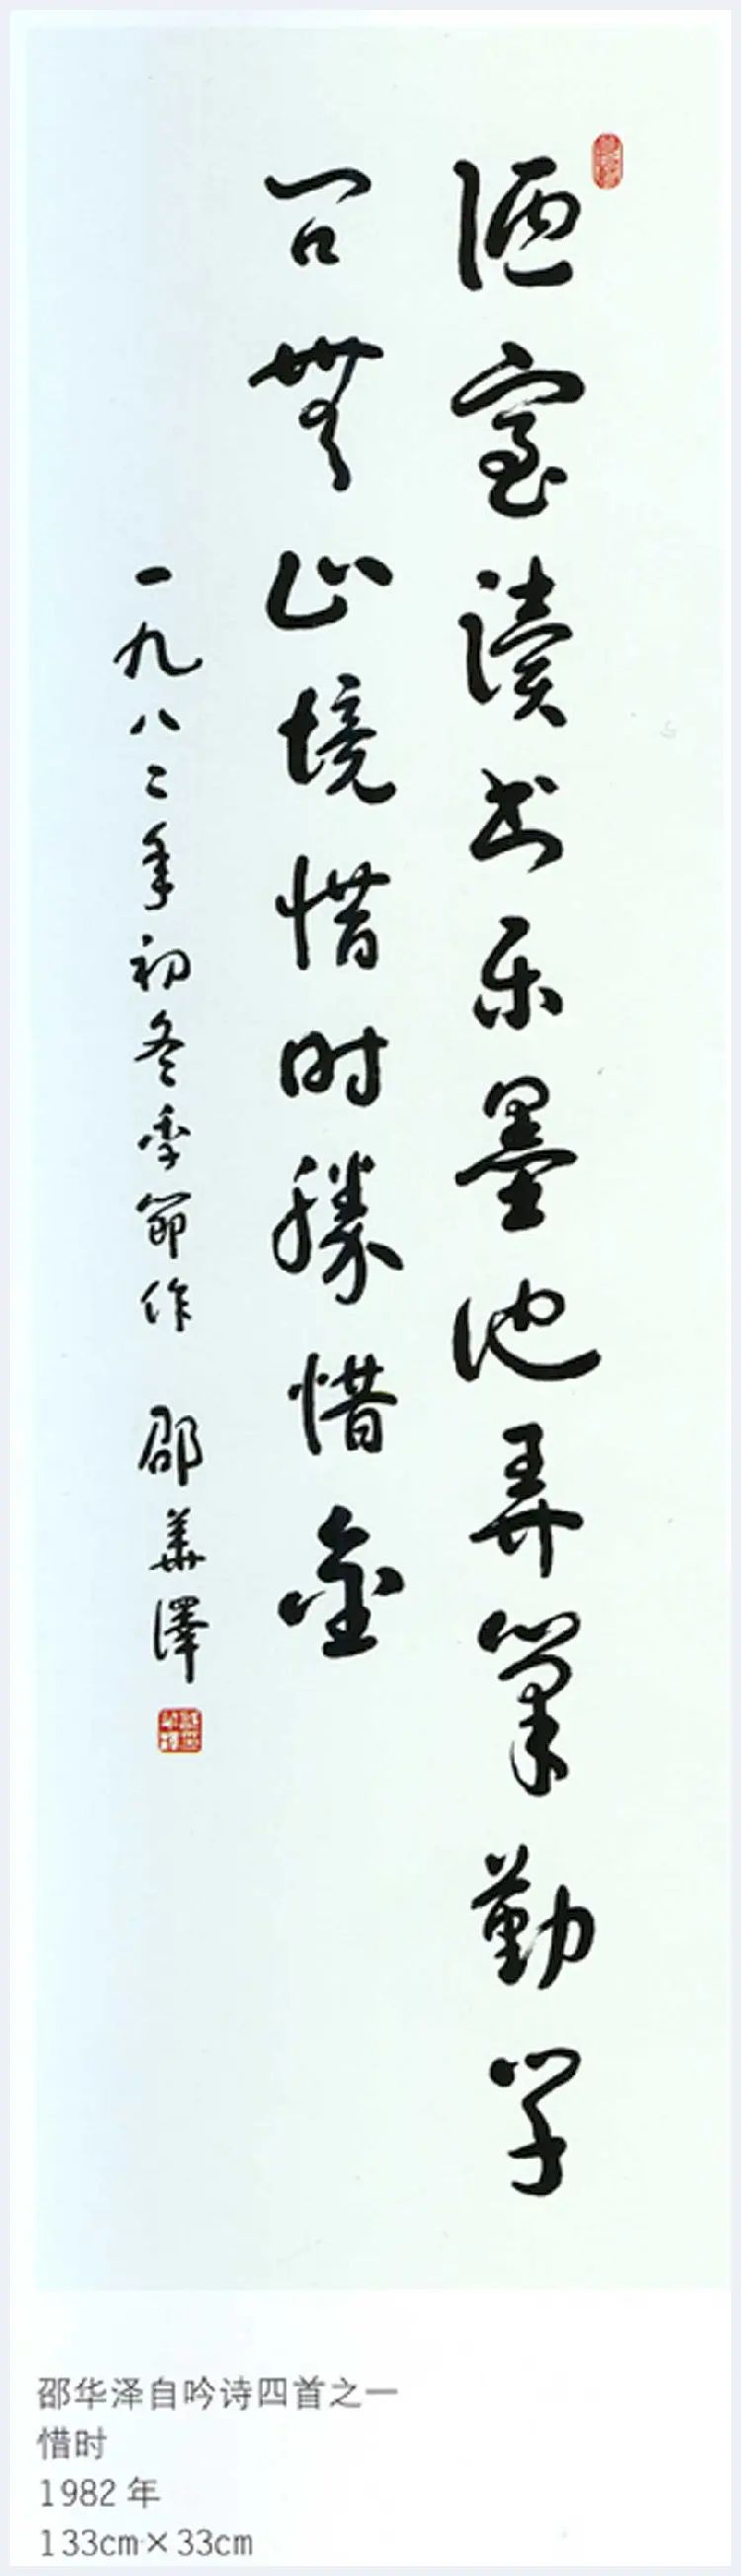 陋室讀书乐墨池弄筆勤学
问無止境惜时勝惜金
一九八二年初冬季節作 邵華澤
邵华泽自吟诗四首之一
惜时
1982年
133cm×33cm